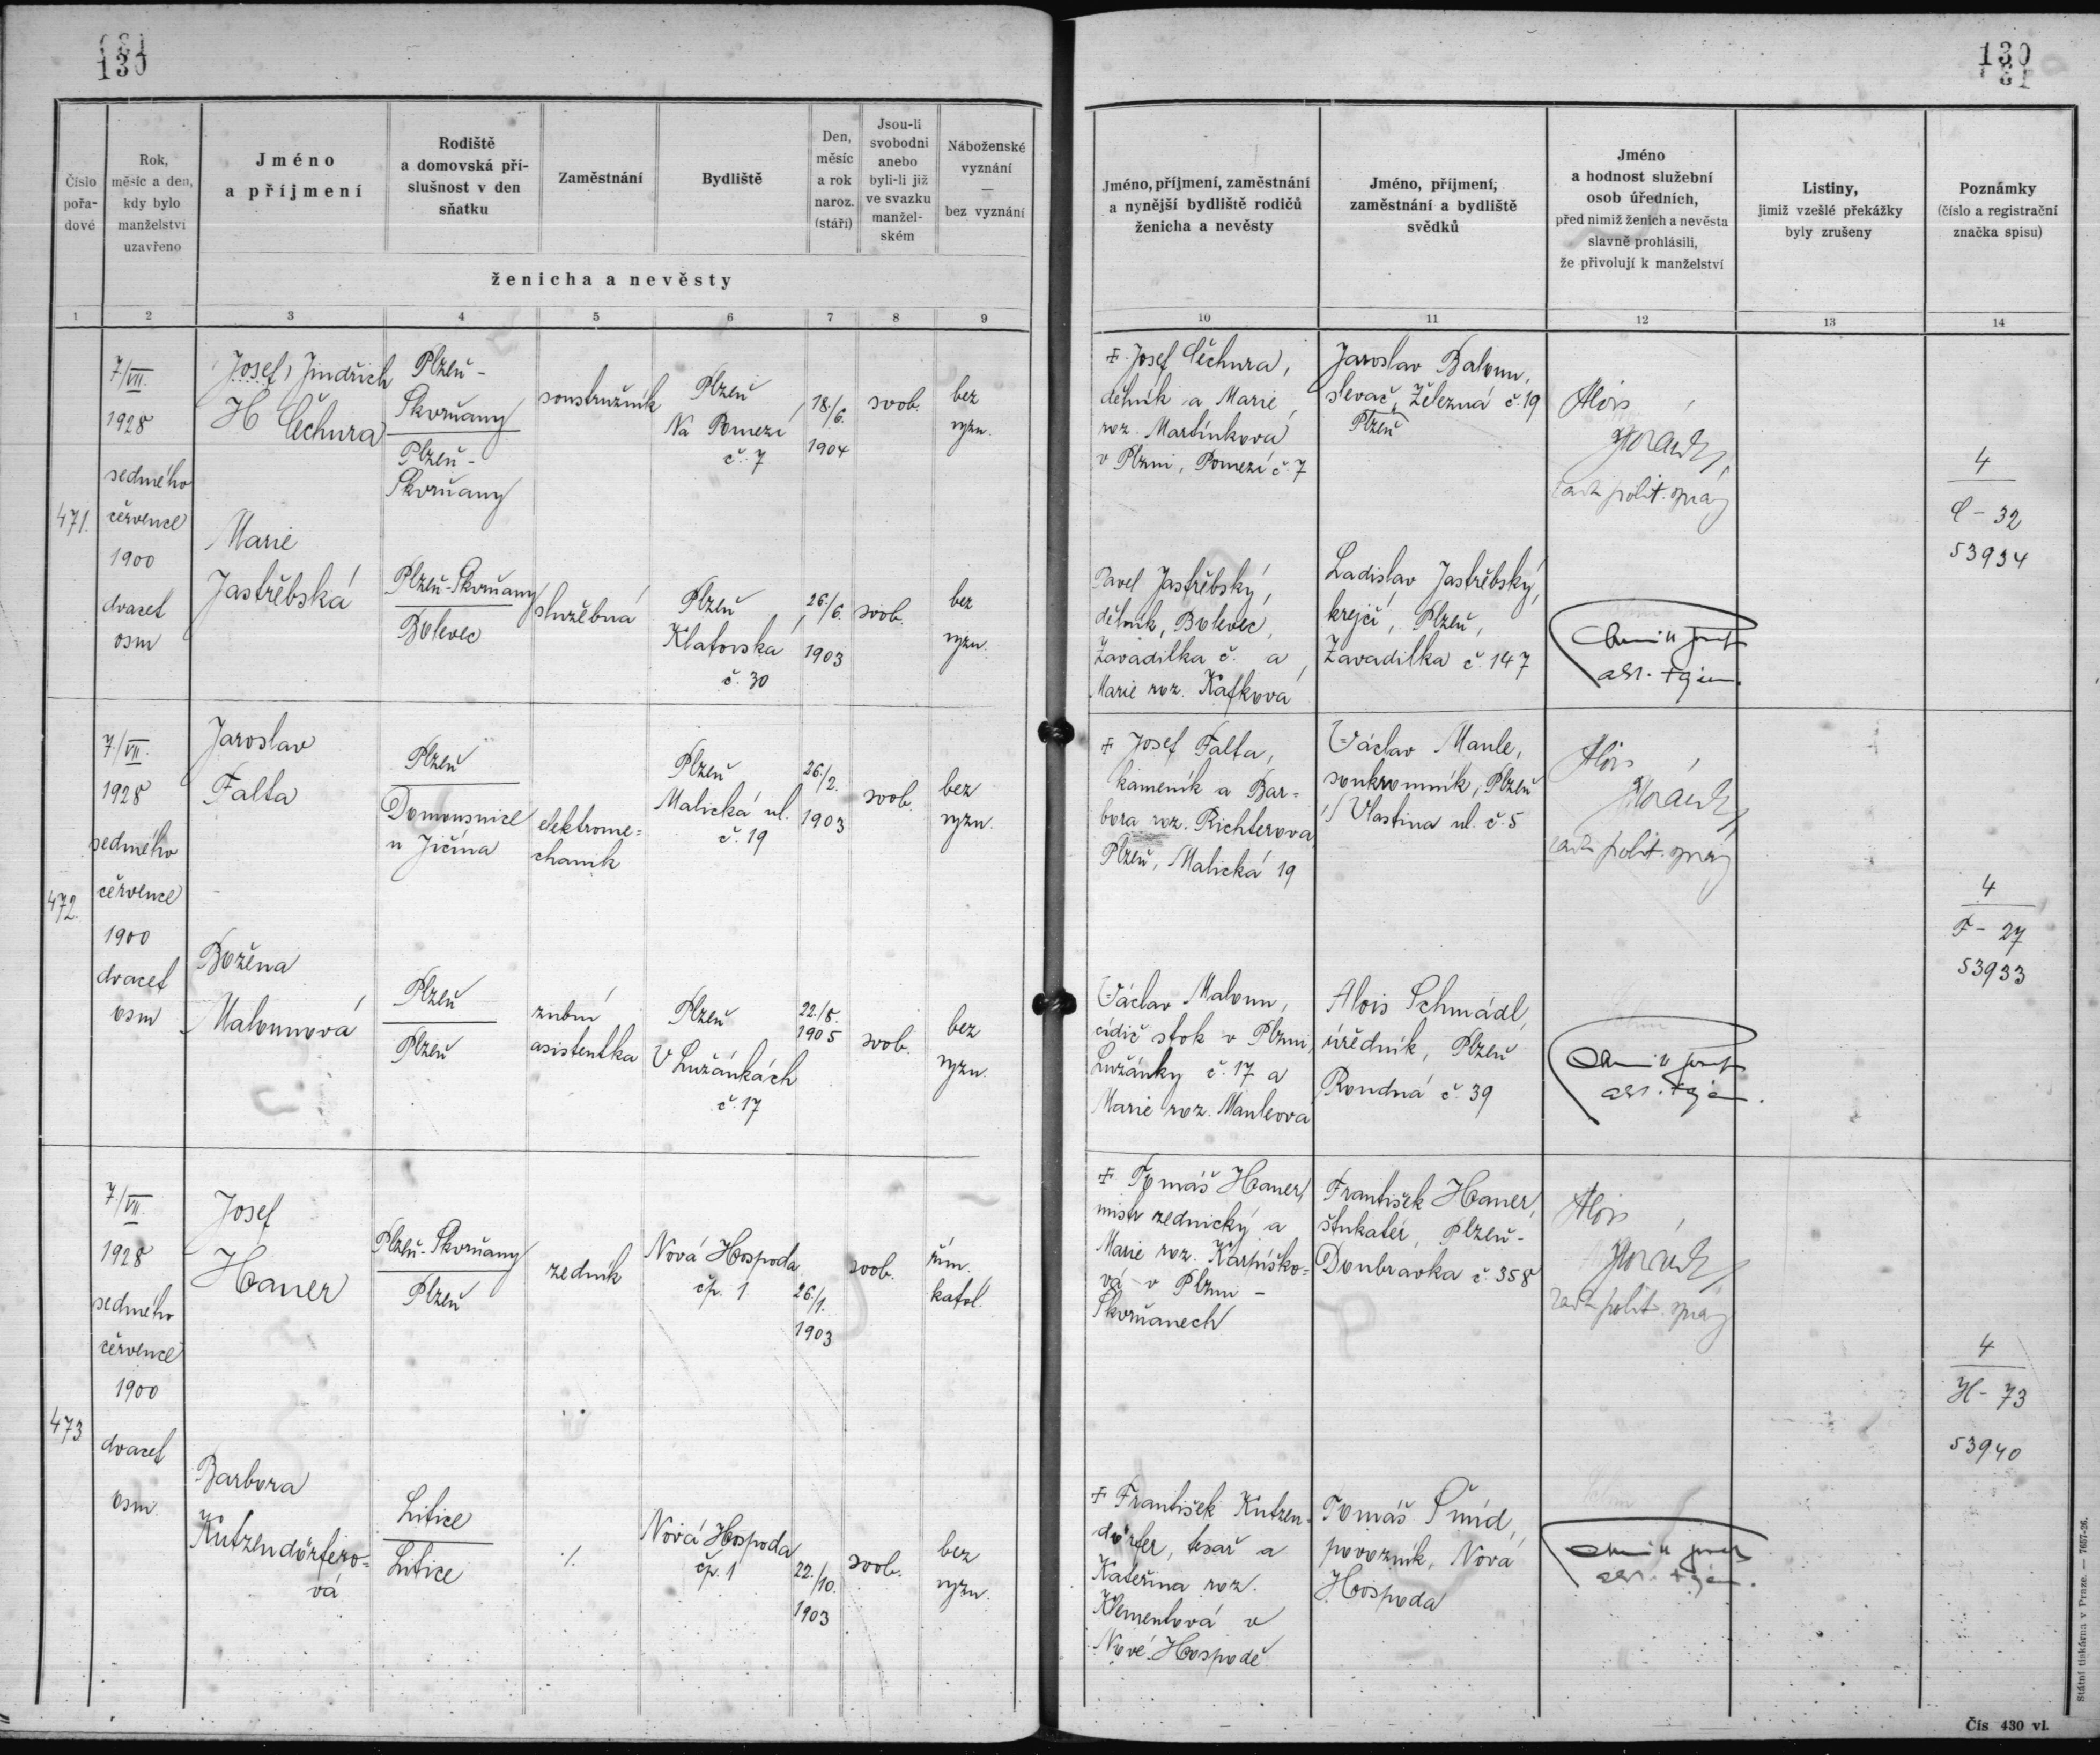 130
130
Číslo pořa-dové
Rok, měsíc a den, kdy bylo manželství uzavřeno
Jméno a příjmení
Rodiště a domovská pří-slušnost v den sňatku
Zaměstnání
Bydliště
Den, měsíc a rok naroz. (stáří)
Jsou-li svobodni anebo byli-li již ve svazku manžel-ském
Náboženské vyznání — bez vyznání
ženicha a nevěsty
Jméno, příjmení, zaměstnání a nynější bydliště rodičů ženicha a nevěsty
Jméno, příjmení, zaměstnání a bydliště svědků
Jméno a hodnost služební osob úředních, před nimiž ženich a nevěsta slavně prohlásili, že přivolují k manželství
Listiny, jimiž vzešlé překážky byly zrušeny
Poznámky (číslo a registrační značka spisu)
1 2 3 4 5 6 7 8 9 10 11 12 13 14
471.
7/VII.
1928
sedmého
července
1900
dvacet
osm
Josef, Jindřich
Čechura
Plzeň -
Skvrňany
Plzeň -
Skvrňany
soustružník
Plzeň
Na Pomezí
č. 7
18/6.
1904
svob.
bez
vyzn.
Marie
Jastřěbská
Plzeň-Skvrňany
Bolevec
služebná
Plzeň,
Klatovská
č. 30
26./6.
1903
svob.
bez
vyzn.
Josef Čechura,
dělník a Marie
roz. Martínková
v Plzni, Pomezí č. 7
Jaroslav Baloun,
slevač, Železná č. 19
Plzeň
Alois
polit. správy
Pavel Jastřěbský,
dělník, Bolevec,
Zavadilka č. a
Marie roz. Kafková
Ladislav Jastřěbský,
krejčí, Plzeň,
Zavadilka č. 147
4
C - 32
53934
472.
7./VII.
1928
sedmého
července
1900
dvacet
osm
Jaroslav
Falta
Plzeň
Domousnice
u Jičína
elektrome=
chanik
Plzeň
Malická ul.
č. 19
26./2.
1903
svob.
bez
vyzn.
Božena
Malounová
Plzeň
Plzeň
zubní
asistentka
Plzeň
V Lužánkách
č. 17
22./8.
1905
svob.
bez
vyzn.
Josef Falta,
kameník a Bar=
bora roz. Richterova
Plzeň, Malická 19
Václav Maule,
soukromník, Plzeň
Vlastina ul. č. 5
Alois
polit. správy
Václav Maloun,
cídič stok v Plzni,
Lužánky č. 17 a
Marie roz. Mauleova
Alois Schmádl,
úředník, Plzeň
Roudná č. 39
4
F - 27
53933
473
7./VII.
1928
sedmého
července
1900
dvacet
osm
Josef
Hauer
Plzeň-Skvrňany
Plzeň
zedník
Nová Hospoda
čp. 1
26/1.
1903
svob.
řím.
katol.
Barbora
Kutzendörfero=
vá
Litice
Litice
./.
Nová Hospoda
čp. 1
22./10.
1903
svob.
bez
vyzn.
Tomáš Hauer,
mistr zednický a
Marie roz. Karpíško=
vá v Plzni -
Skvrňanech
František Hauer,
štukatér, Plzeň-
Doubravka č. 358
Alois
polit. správy
František Kutzen-
dörfer, tesař a
Kateřina roz.
Klementová v
Nové Hospodě
Tomáš Šmíd,
povozník, Nová
Hospoda
4
H - 73
53940
Státní tiskárna v Praze. — 7657-26.
Čís 430 vl.